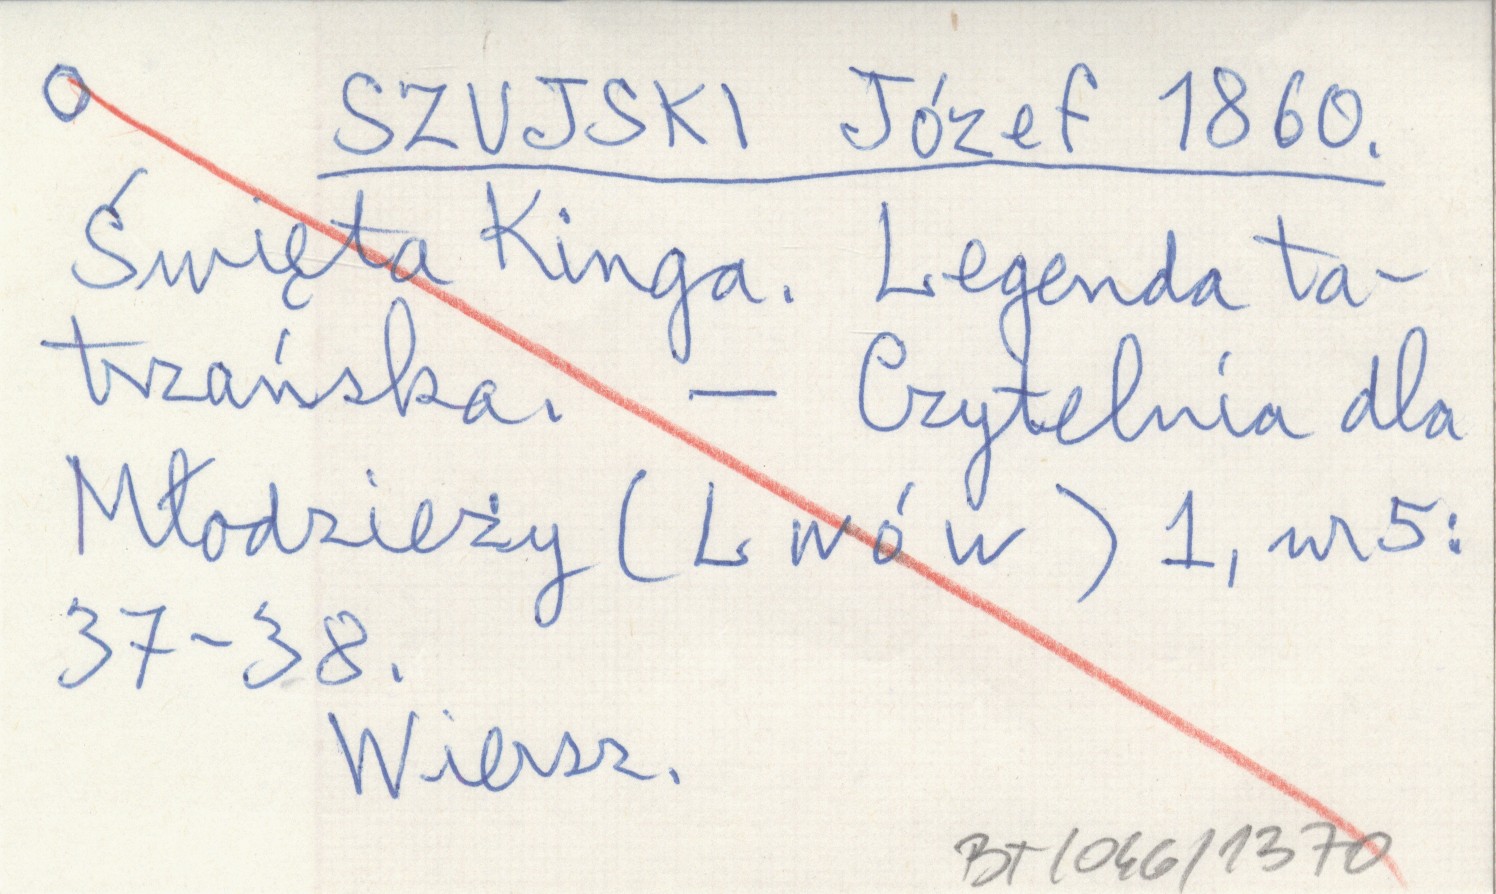 O SZUJSKI Józef 1860.
Święta Kinga. Legenda ta-
trzańska. — Czytelnia dla
Młodzieży (Lwów) 1, nr 5:
37-38.
Wiersz.
BT/046/1370